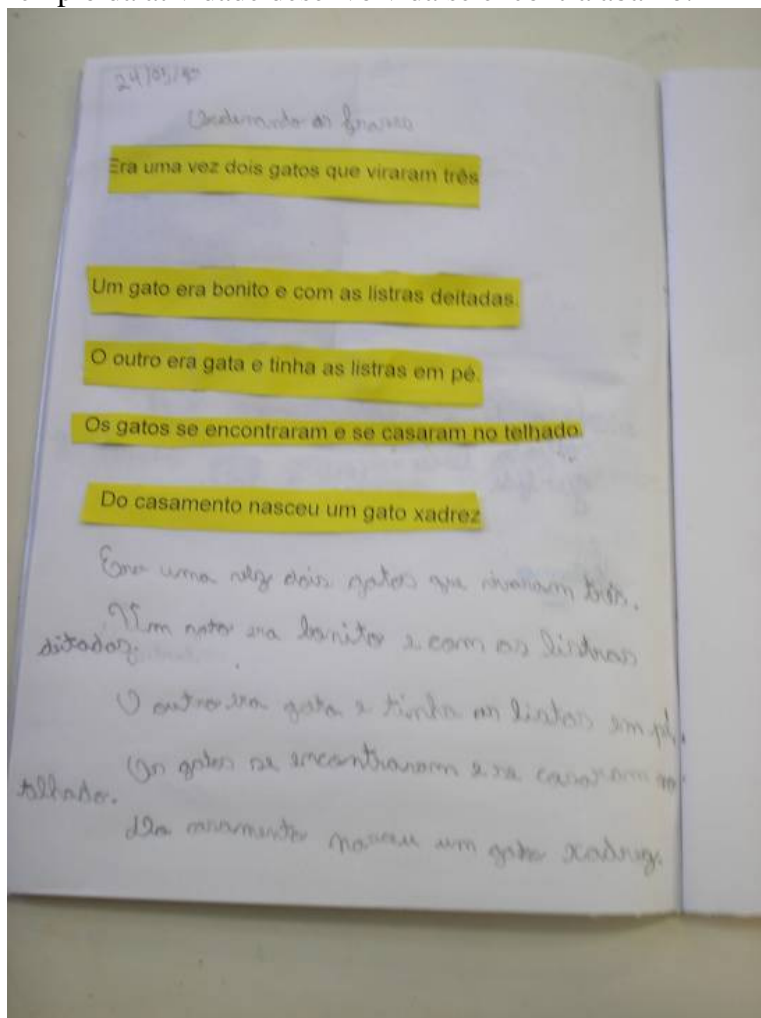 24/05/
Ordenando as frases
Era uma vez dois gatos que viraram três
Um gato era bonito e com as listras deitadas.
O outro era gata e tinha as listras em pé.
Os gatos se encontraram e se casaram no telhado.
Do casamento nasceu um gato xadrez
Era uma vez dois gatos que viraram três.
Um gato era bonito e com as listras
deitadas.
O outro era gata e tinha as listas em pé.
Os gatos se encontraram e se casaram no
telhado.
Do nasceu um gato xadrez.